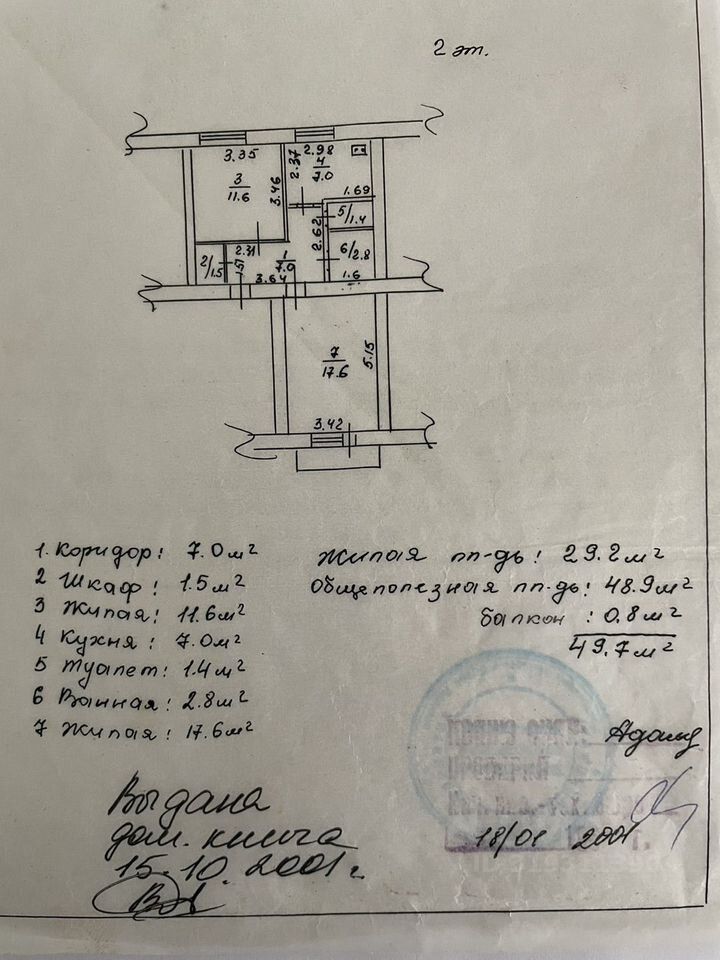 2 эт.
3.35
2.98
2.37
4
7.0
3
11.6
3.46
1.69
5/1.4
2.62
6/2.8
2/1.5
2.31
1
7.0
3.64
1.6
7
17.6
5.15
3.42
1. Коридор: 7.0 м²
2 Шкаф: 1.5 м²
3 Жилая: 11.6 м²
4 Кухня: 7.0 м²
5 Туалет: 1.4 м²
6 Ванная: 2.8 м²
7 Жилая: 17.6 м²
Жилая пл-дь: 29.2 м²
Общеполезная пл-дь: 48.9 м²
балкон: 0.8 м²
49.7 м²
Выдана
дом. книга
15.10.2001 г.
18/01 2001 г.